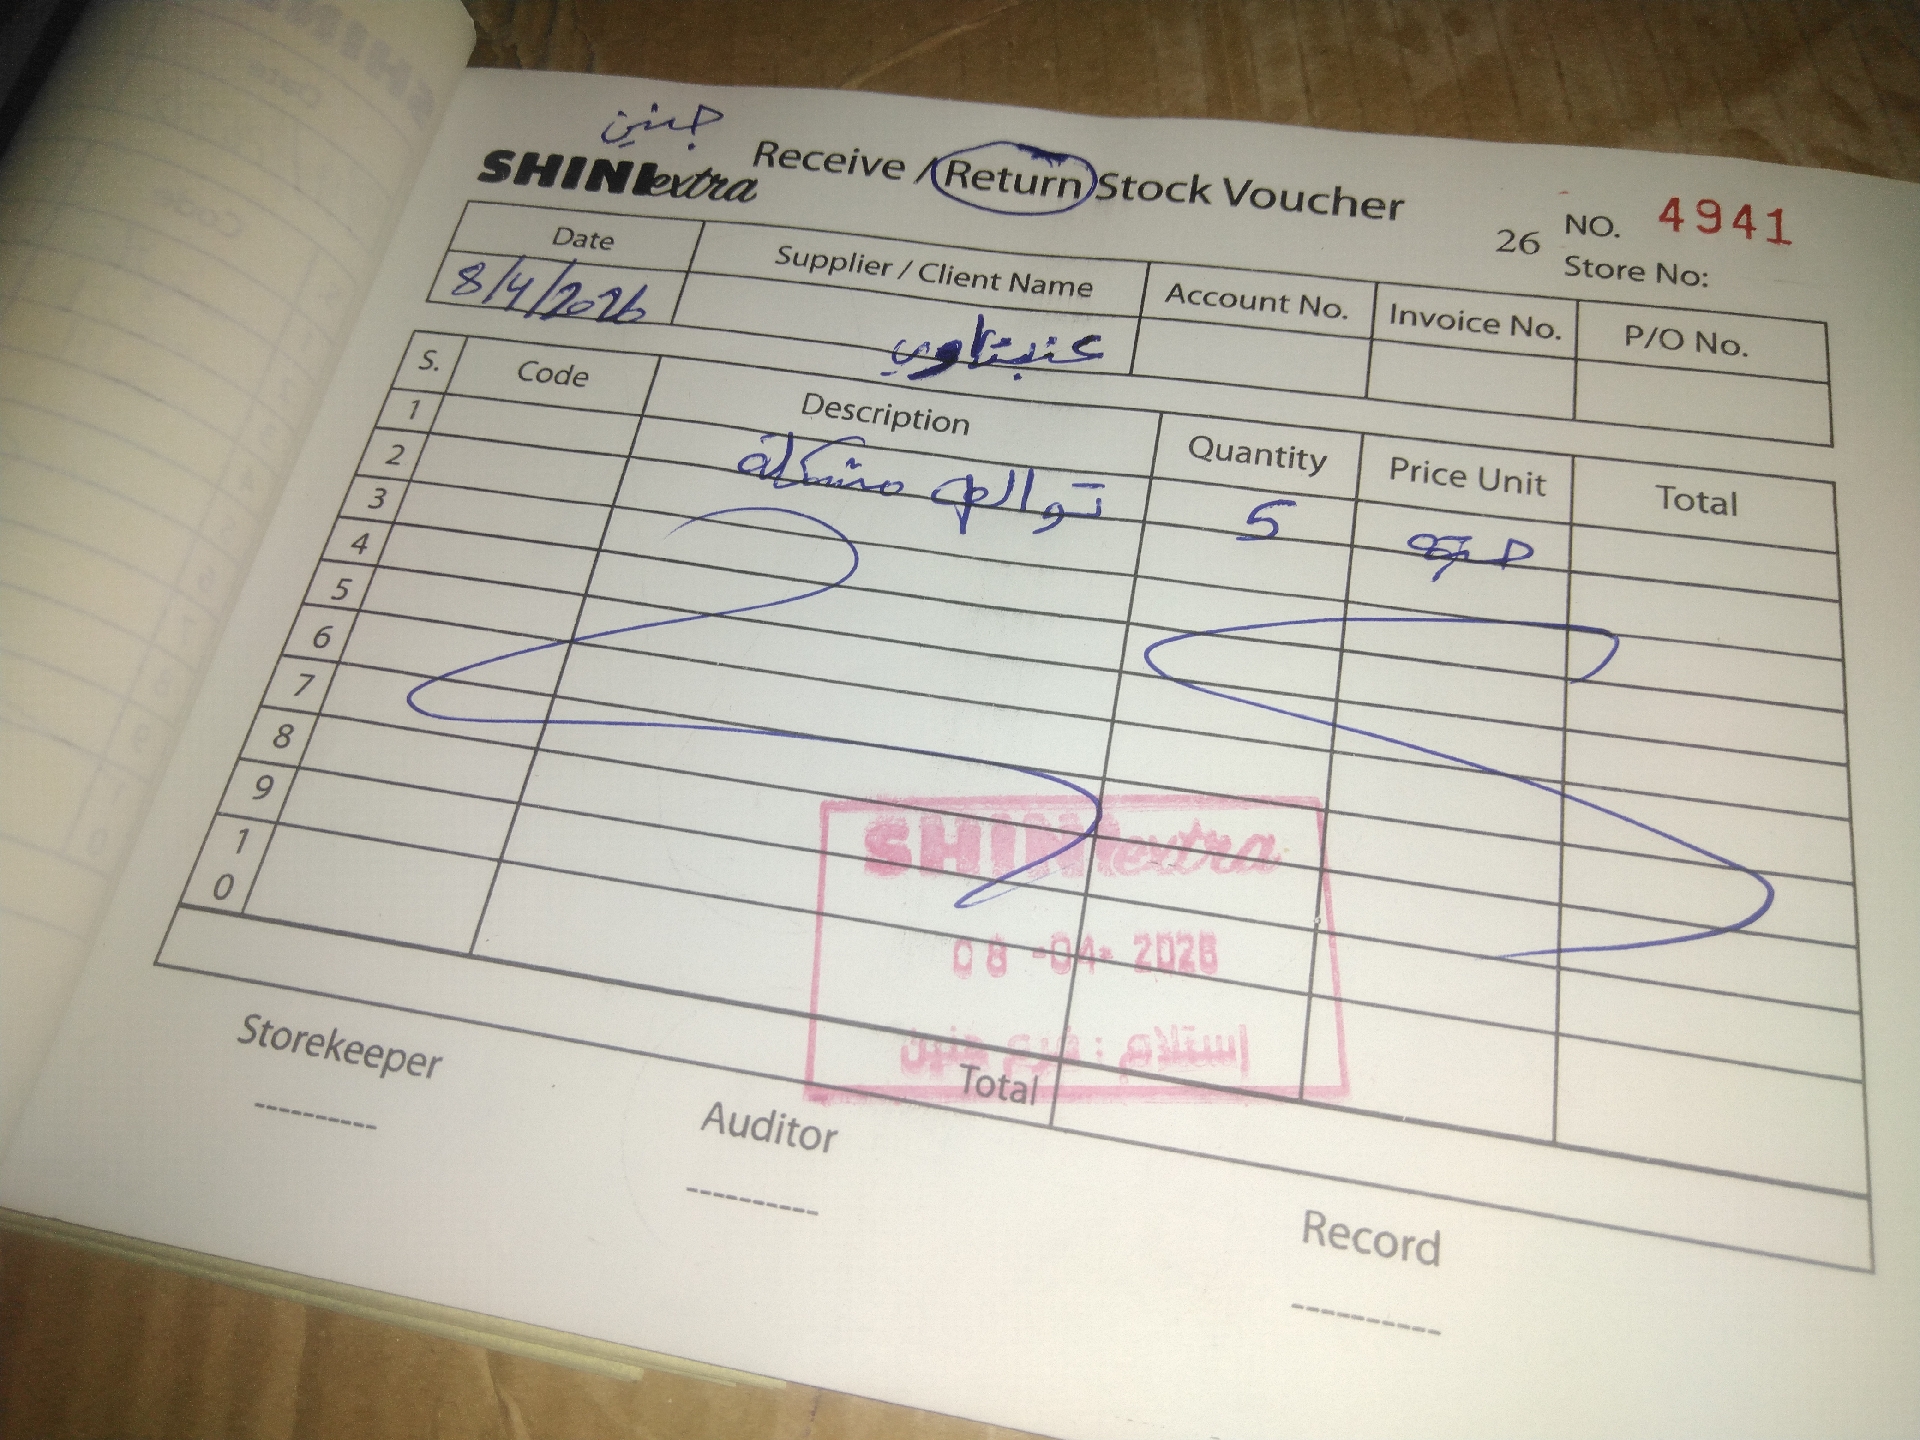 جنين
SHINE extra Receive / Return Stock Voucher
NO. 4941
26 Store No:
Date Supplier / Client Name Account No. Invoice No. P/O No.
8/4/2026 عنبتاوي
S. Code Description Quantity Price Unit Total
1 توالف مشكلة 5
2
3
4
5
6
7
8
9
10
SHINE extra
08 -04- 2026
إستلام : فرع جنين
Total
Storekeeper Auditor Record